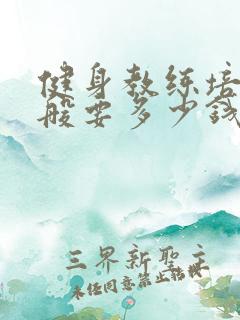 健身教练培
般要多少钱
三界新聖主
未经同意禁止转载